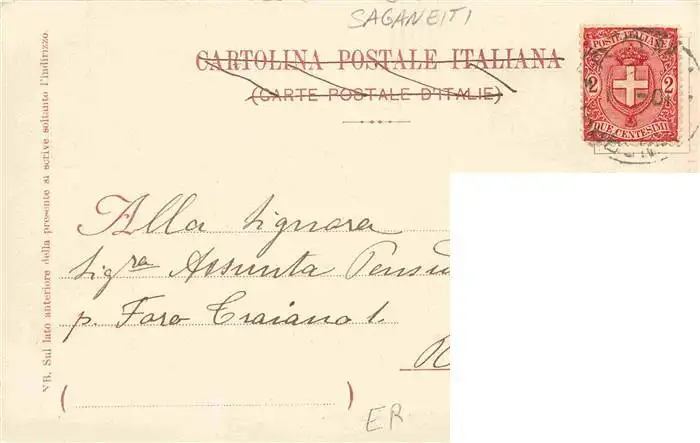 SAGANEITI
CARTOLINA POSTALE ITALIANA
(CARTE POSTALE D'ITALIE)
POSTE ITALIANE
2 2
DUE CENTESIMI
NB. Sul lato anteriore della presente si scrive soltanto l'indirizzo.
Alla Signora
Sigra Assunta
p. Foro Traiano 1.
( )
ER